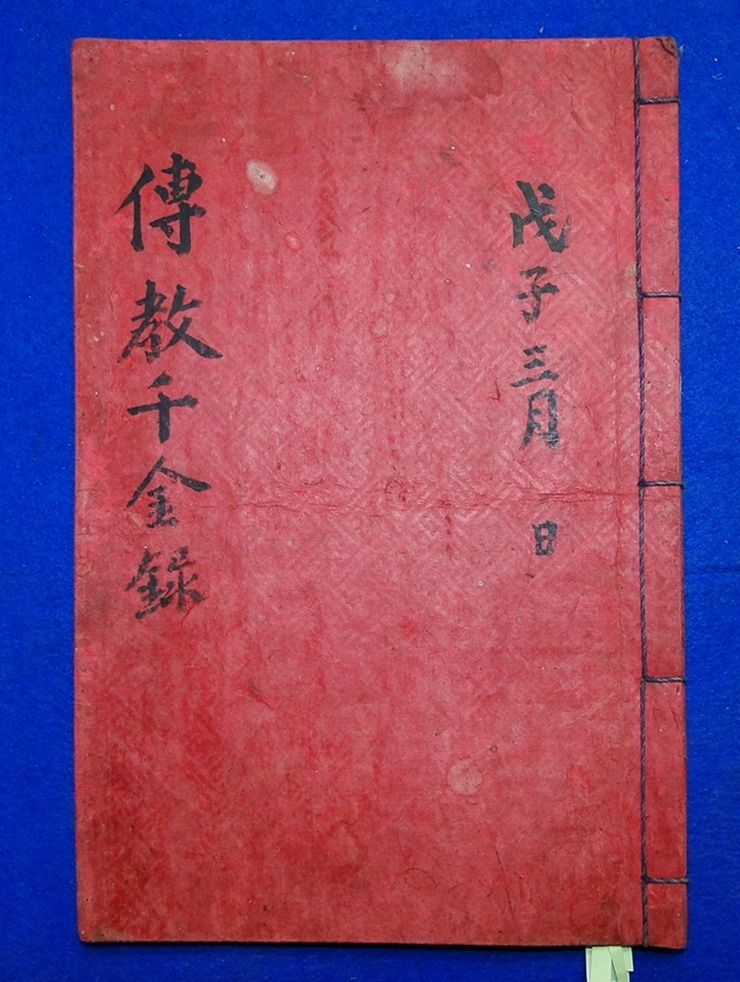 戊子三月 日
傳教千金錄